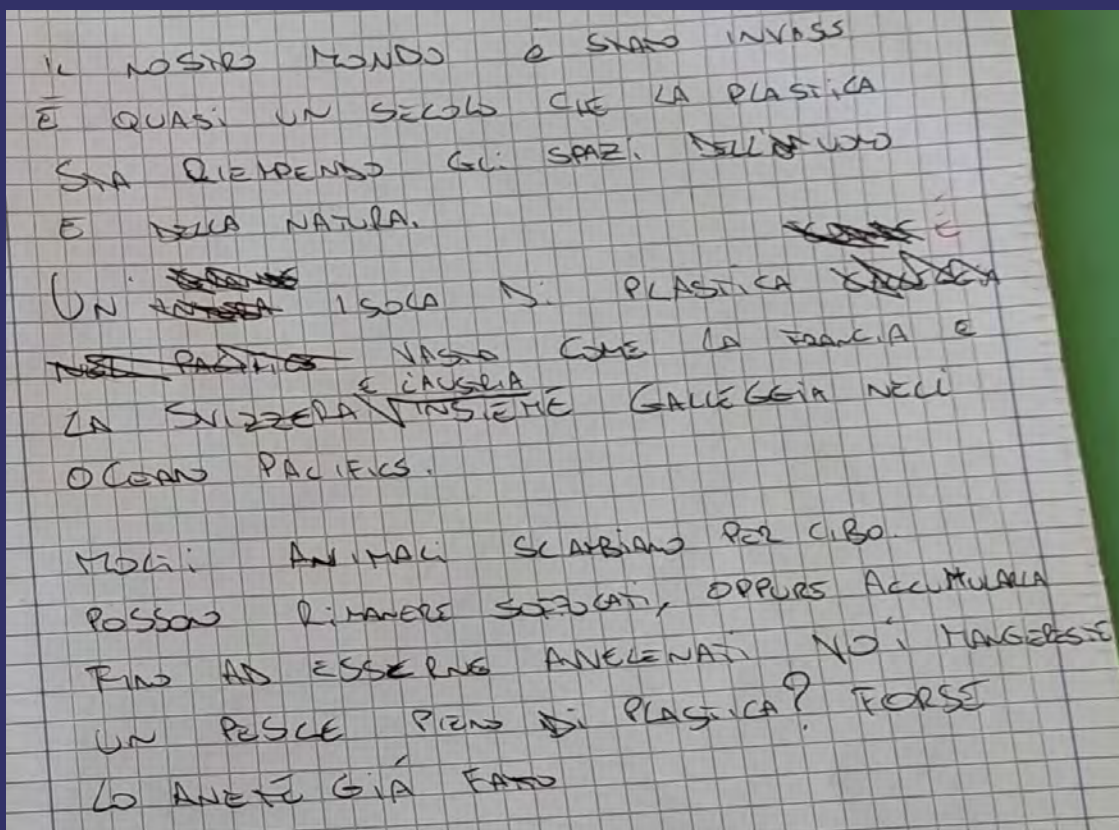 IL NOSTRO MONDO È STATO INVASO
È QUASI UN SECOLO CHE LA PLASTICA
STA RIEMPENDO GLI SPAZI DELL'UOMO
E DELLA NATURA.
È
UN' ISOLA DI PLASTICA
VASTO COME LA FRANCIA E
LA SVIZZERA E L'AUSTRIA INSIEME GALLEGGIA NELL
OCEANO PACIFICO.
MOLTI ANIMALI SCAMBIANO PER CIBO.
POSSONO RIMANERE SOFFOCATI, OPPURE ACCUMULARLA
FINO AD ESSERNE AVVELENATI VOI MANGERESTE
UN PESCE PIENO DI PLASTICA? FORSE
LO AVETE GIÀ FATTO